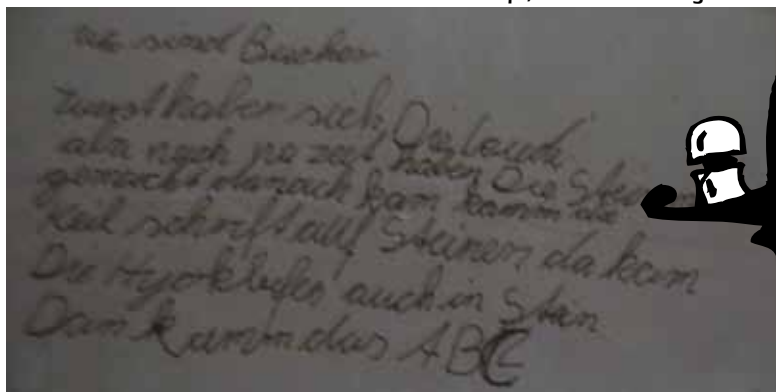 sind Bücher
haben sich Die Leuch
als noch no zeit haben Die Steinen
gemacht danach kam kamm die
Keil schrift auf Steinen da kam
Die Hyroklyfen auch in Stein
Dan kamm das ABC